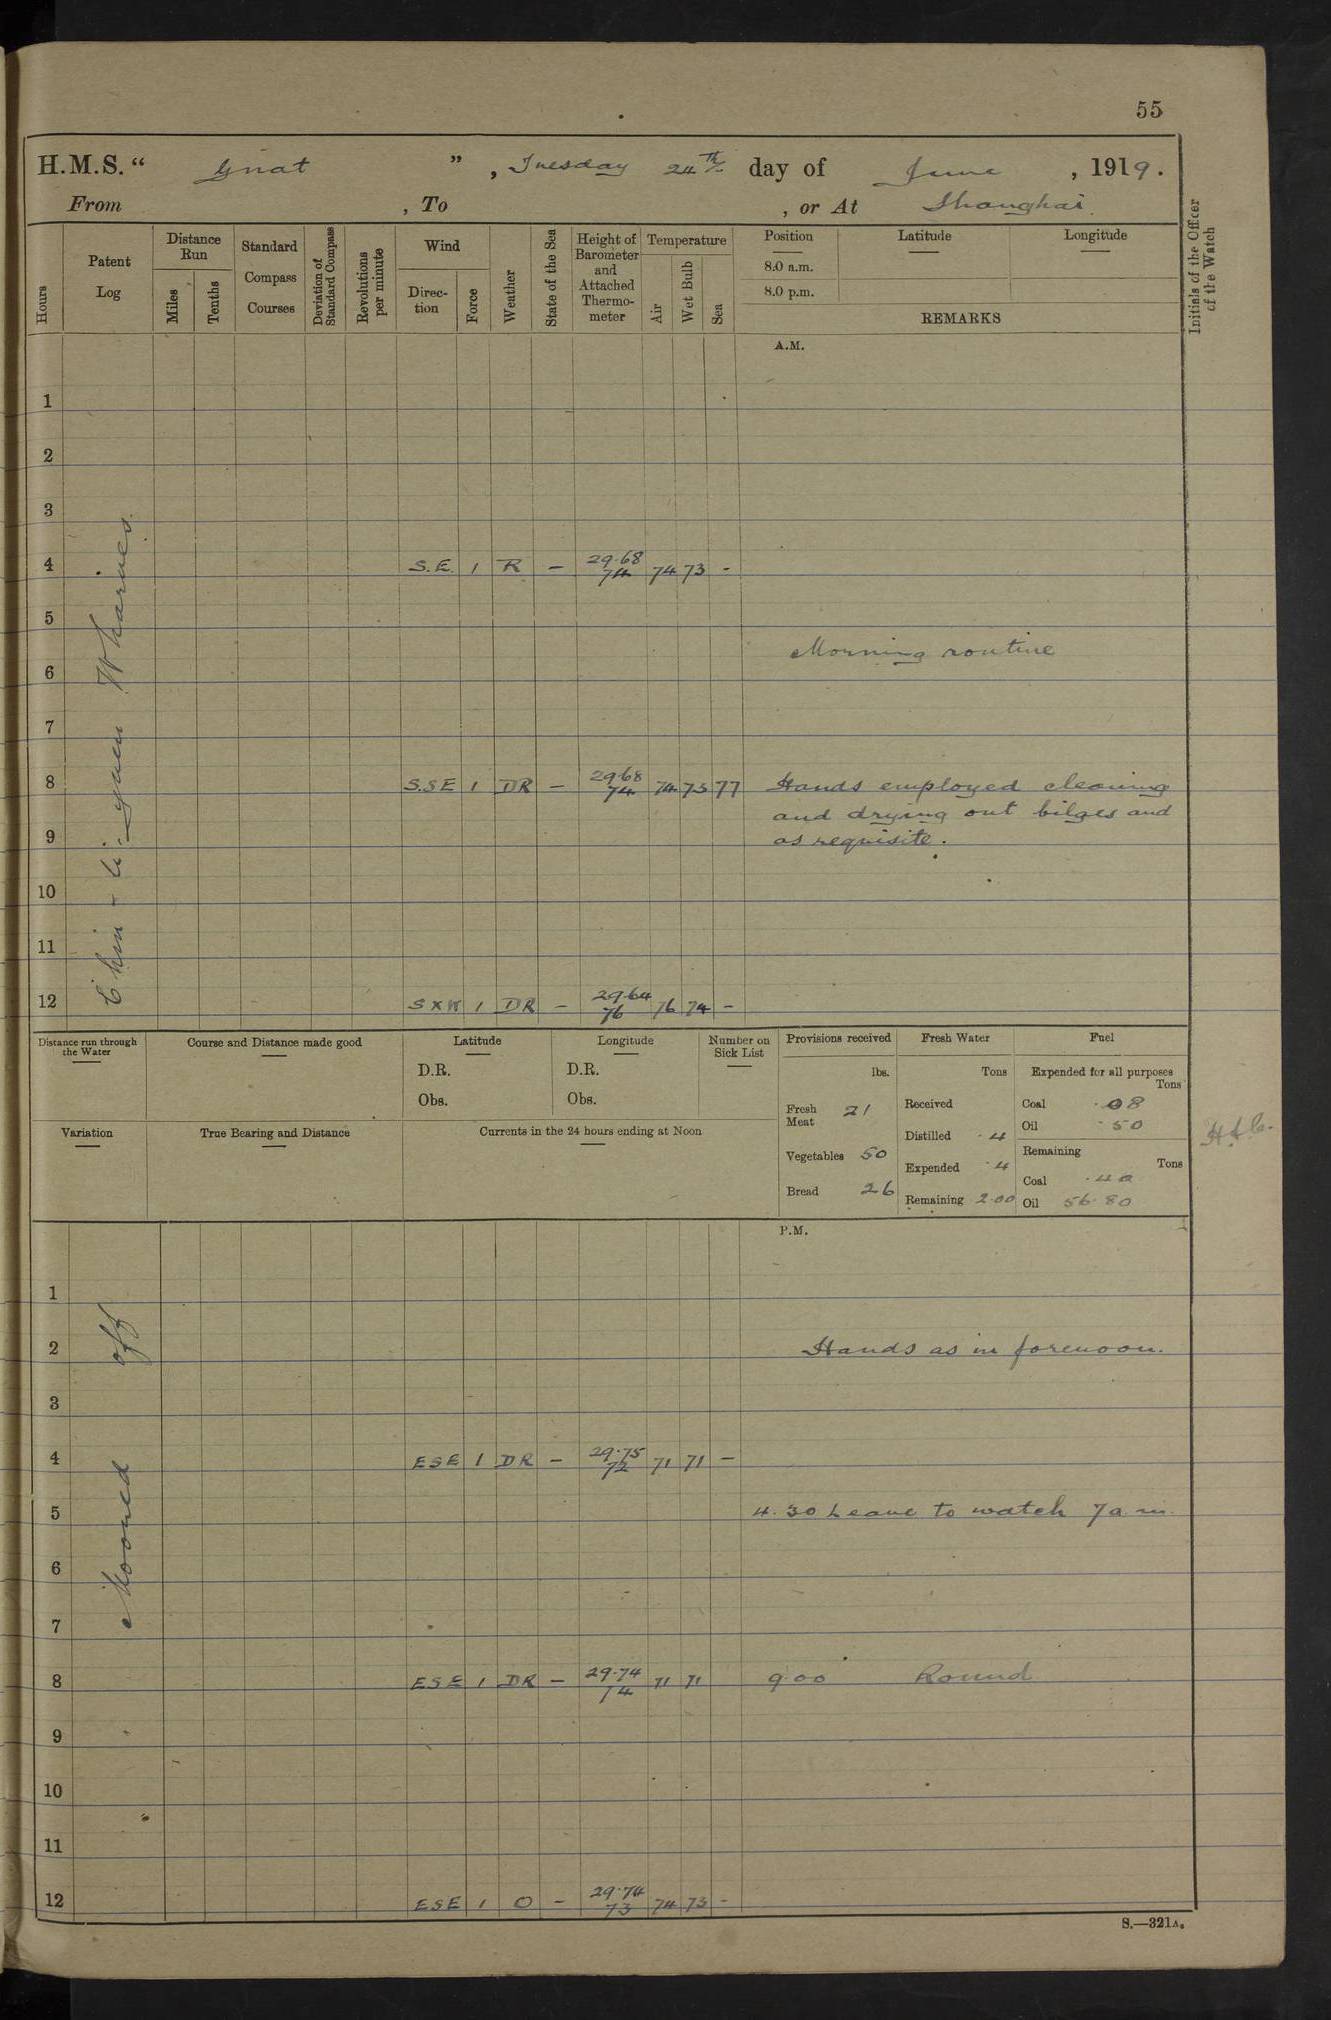 55
H.M.S. " Gnat ", Tuesday 24th day of June, 1919.
From , To , or At Shanghai.
Hours
Patent Log
Distance Run
Miles
Tenths
Standard Compass Courses
Deviation of Standard Compass
Revolutions per minute
Wind
Direction
Force
Weather
State of the Sea
Height of Barometer and Attached Thermometer
Temperature
Air
Wet Bulb
Sea
Position
Latitude
Longitude
8.0 a.m.
8.0 p.m.
REMARKS
Initials of the Officer of the Watch
A.M.
1
2
3
4 S.E. 1 R – 29.68 74 74 73 -
5
Morning routine
6
7
8 S.SE 1 DR – 29.68 74 74 73 77 Hands employed cleaning
and drying out bilges and
9 as requisite.
10
11
12 SXW 1 DR – 29.64 76 76 74 –
Moored off Chin-li-yuen Wharves.
Distance run through the Water
Course and Distance made good
Latitude
D.R.
Obs.
Longitude
D.R.
Obs.
Number on Sick List
Provisions received
lbs.
Fresh Meat 21
Vegetables 50
Bread 26
Fresh Water
Tons
Received
Distilled .4
Expended .4
Remaining 2.00
Fuel
Expended for all purposes
Tons
Coal .08
Oil .50
Remaining
Tons
Coal .40
Oil 56.80
Variation
True Bearing and Distance
Currents in the 24 hours ending at Noon
P.M.
1
2 Hands as in forenoon.
3
4 ESE 1 DR – 29.75 72 71 71 –
5 4.30 Leave to watch 7 a.m.
6
7
8 ESE 1 DR – 29.74 74 71 71 9.00 Round
9
10
11
12 ESE 1 O – 29.74 73 74 73 -
S.—321A.